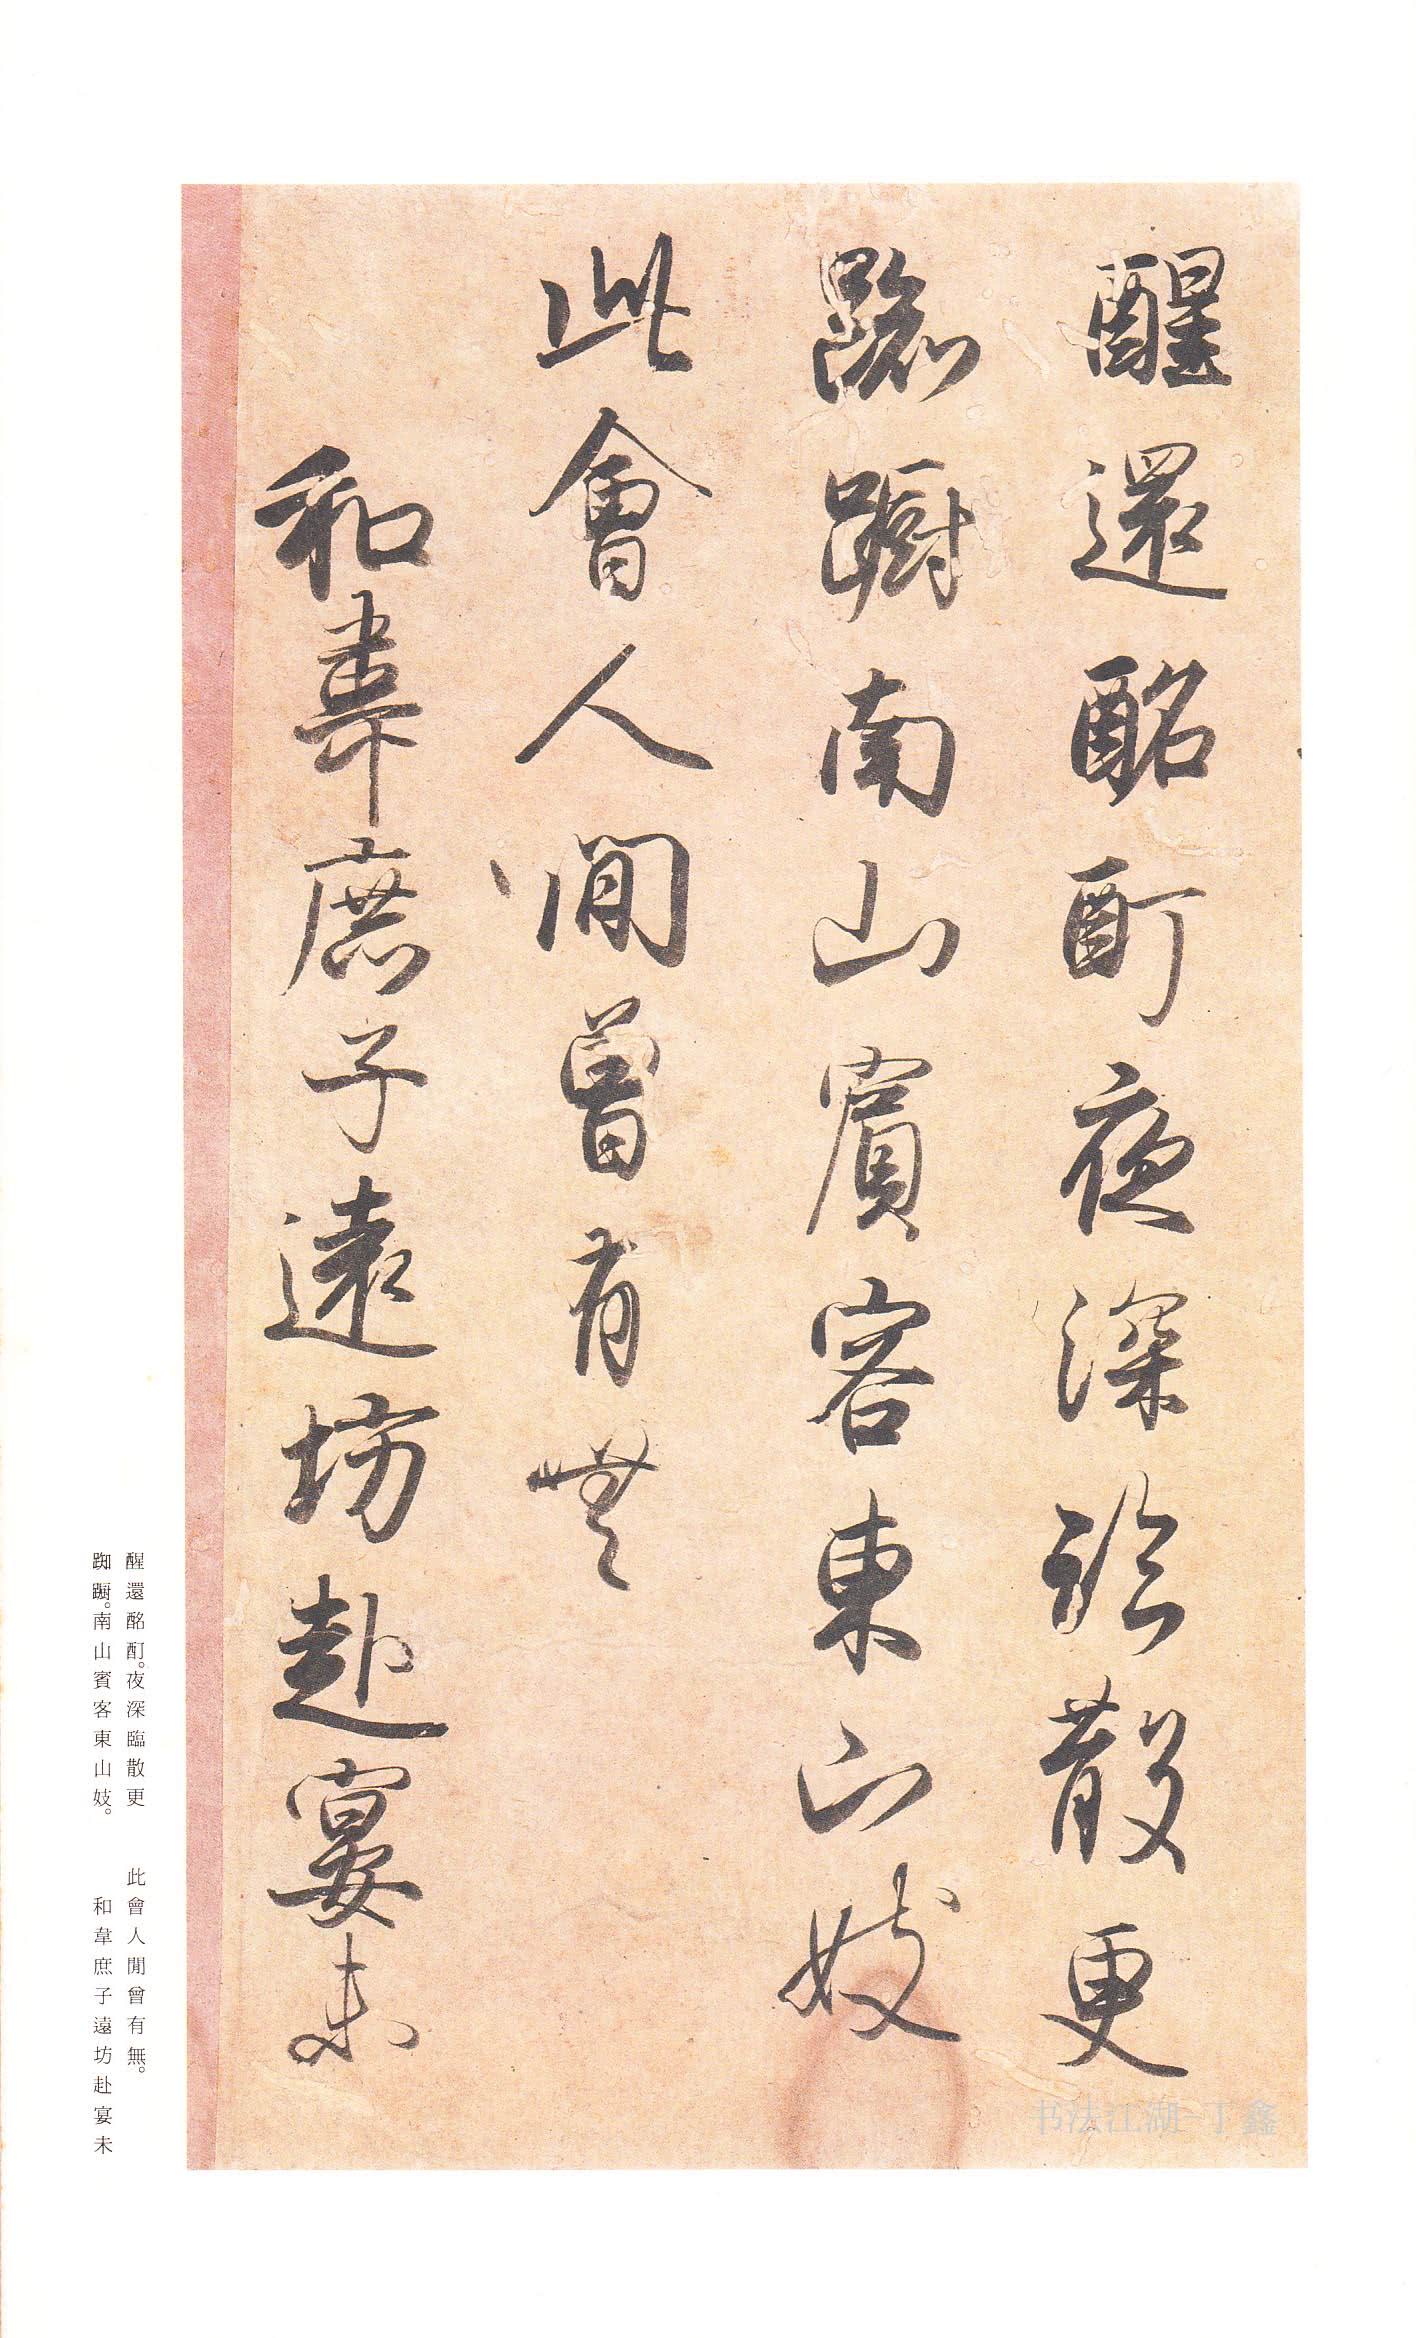 醒還酩酊夜深臨散更
踟躕南山賓客東山妓
此會人間曾有無
和韋庶子遠坊赴宴未
醒還酩酊。夜深臨散更
踟躕。南山賓客東山妓。
此會人閒曾有無。
和韋庶子遠坊赴宴未
书法江湖-丁鑫